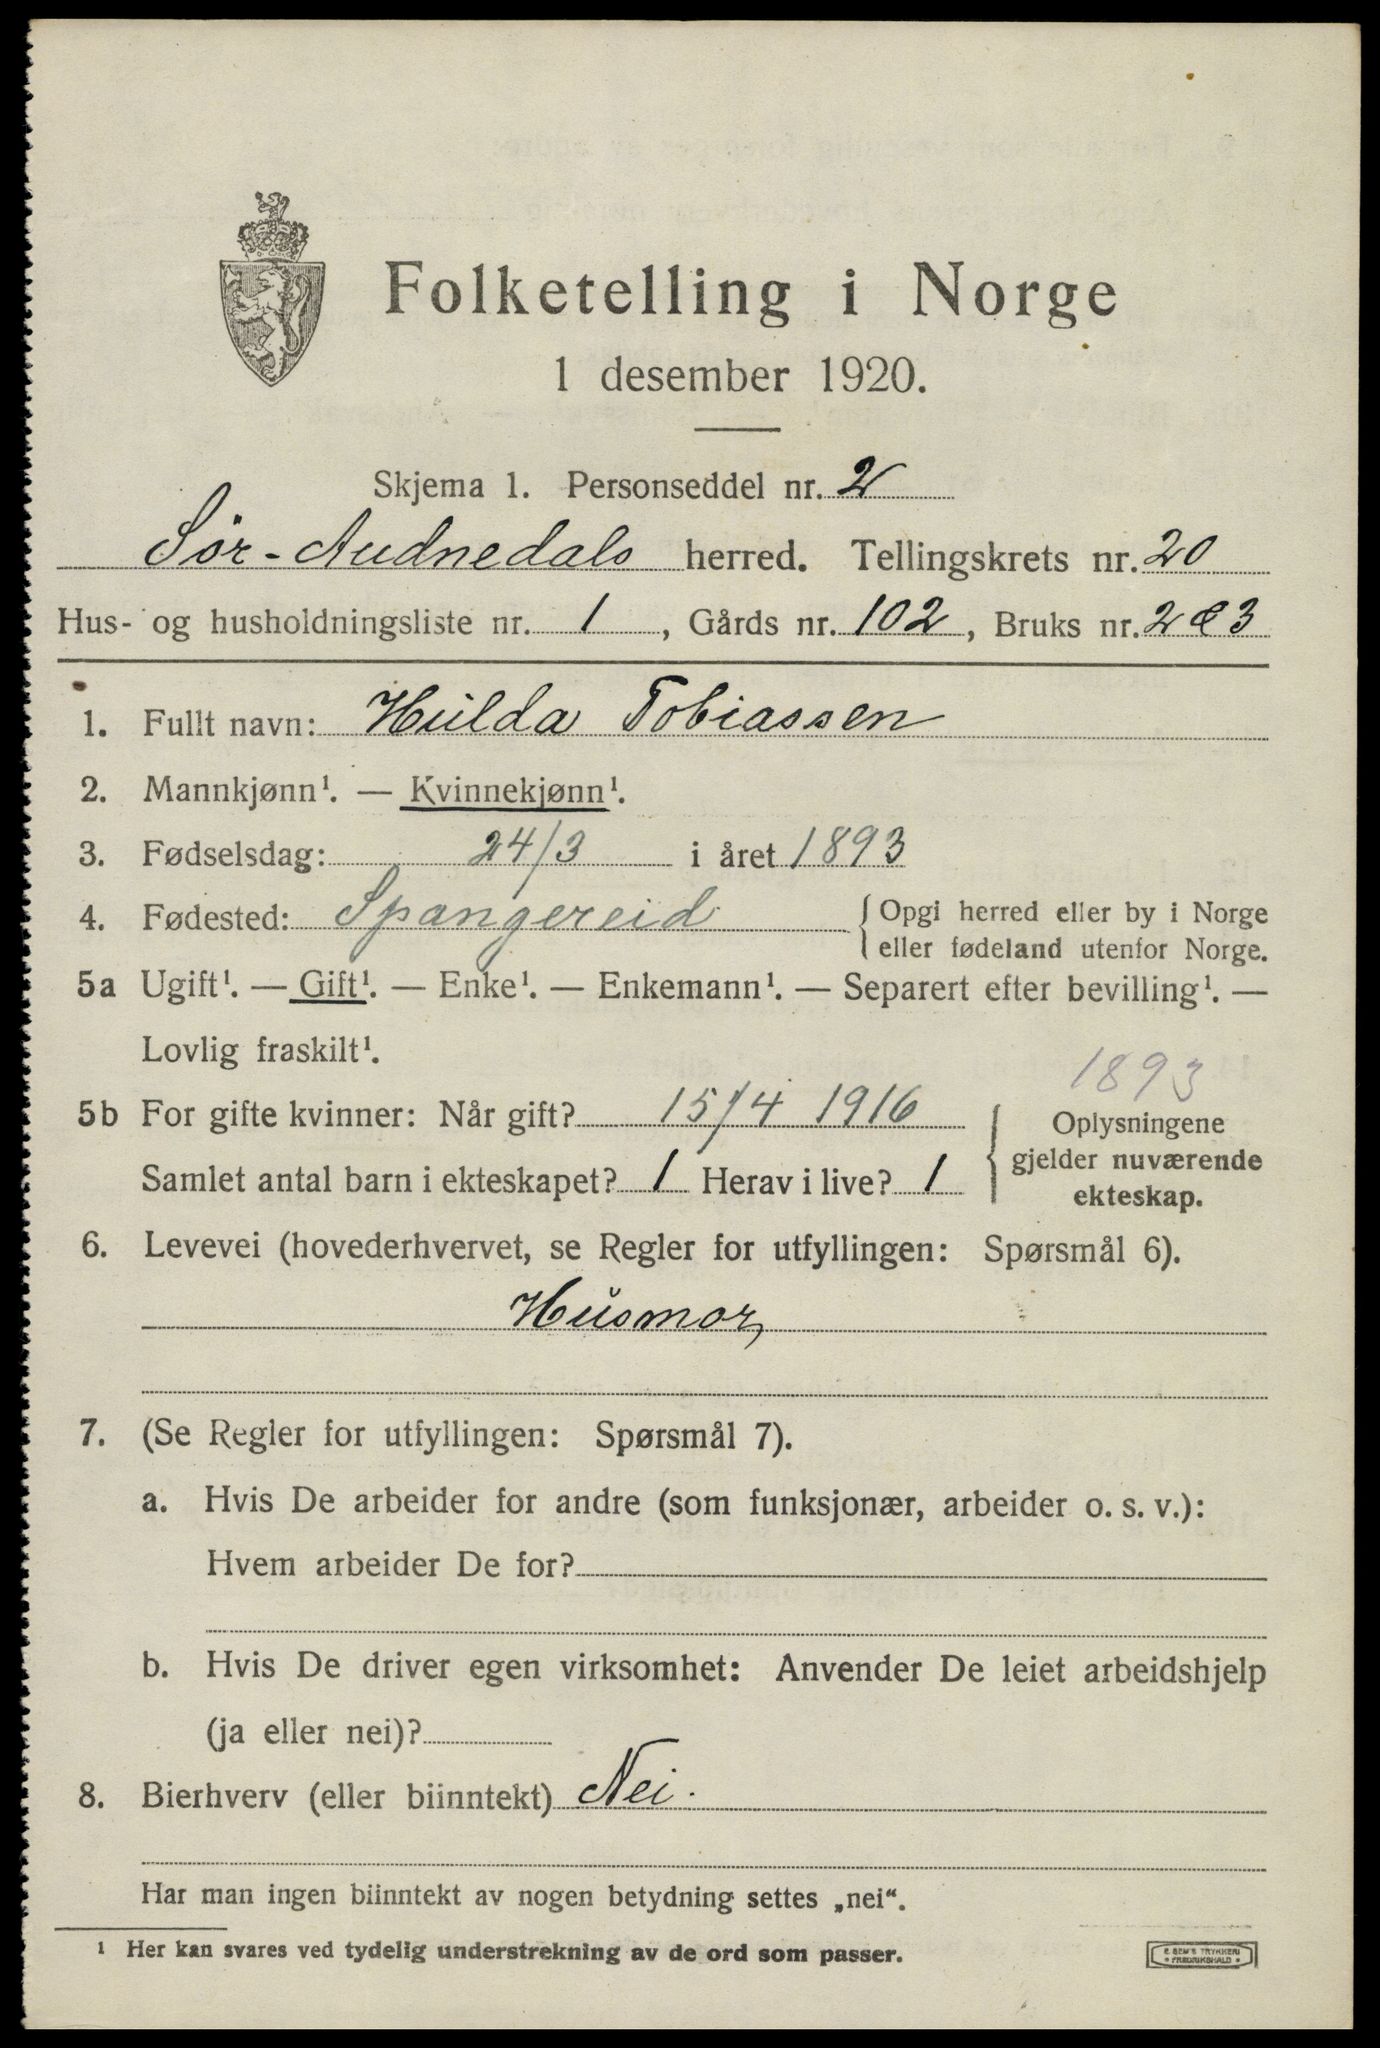 Folketelling i Norge
1 desember 1920.
Skjema 1. Personseddel nr. 2
Sör-Audnedals herred. Tellingskrets nr. 20
Hus- og husholdningsliste nr. 1, Gårds nr. 102, Bruks nr. 2 & 3
1. Fullt navn: Hulda Tobiassen
2. Mannkjønn¹. — Kvinnekjønn¹.
3. Fødselsdag: 24/3 i året 1893
4. Fødested: Spangereid { Opgi herred eller by i Norge
eller fødeland utenfor Norge.
5a Ugift¹. — Gift¹. — Enke¹. — Enkemann¹. — Separert efter bevilling¹. —
Lovlig fraskilt¹.
1893
5b For gifte kvinner: Når gift? 15/4 1916
Samlet antal barn i ekteskapet? 1 Herav i live? 1
{ Oplysningene
gjelder nuværende
ekteskap.
6. Levevei (hovederhvervet, se Regler for utfyllingen: Spørsmål 6).
Husmor,
7. (Se Regler for utfyllingen: Spørsmål 7).
a. Hvis De arbeider for andre (som funksjonær, arbeider o. s. v.):
Hvem arbeider De for?
b. Hvis De driver egen virksomhet: Anvender De leiet arbeidshjelp
(ja eller nei)?
8. Bierhverv (eller biinntekt) Nei.
Har man ingen biinntekt av nogen betydning settes „nei“.
¹ Her kan svares ved tydelig understrekning av de ord som passer.
E. SEM'S TRYKKERI
• FREDRIKSHALD •